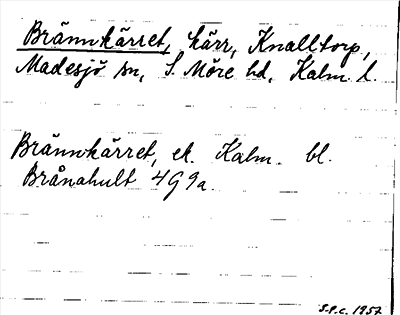 Brännkärret, kärr, Knalltorp,
Madesjö sn, S. Möre hd, Kalm. l.
Brännkärret, ek. Kalm. bl.
Brånahult 4G9a.
S.P.C. 1957